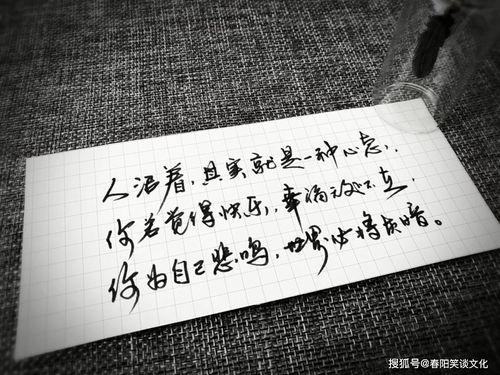 人活着,其实就是一种心态,
你若觉得快乐,幸福无处不在,
你为自己悲鸣,世界必将灰暗。
搜狐号@春阳笑谈文化